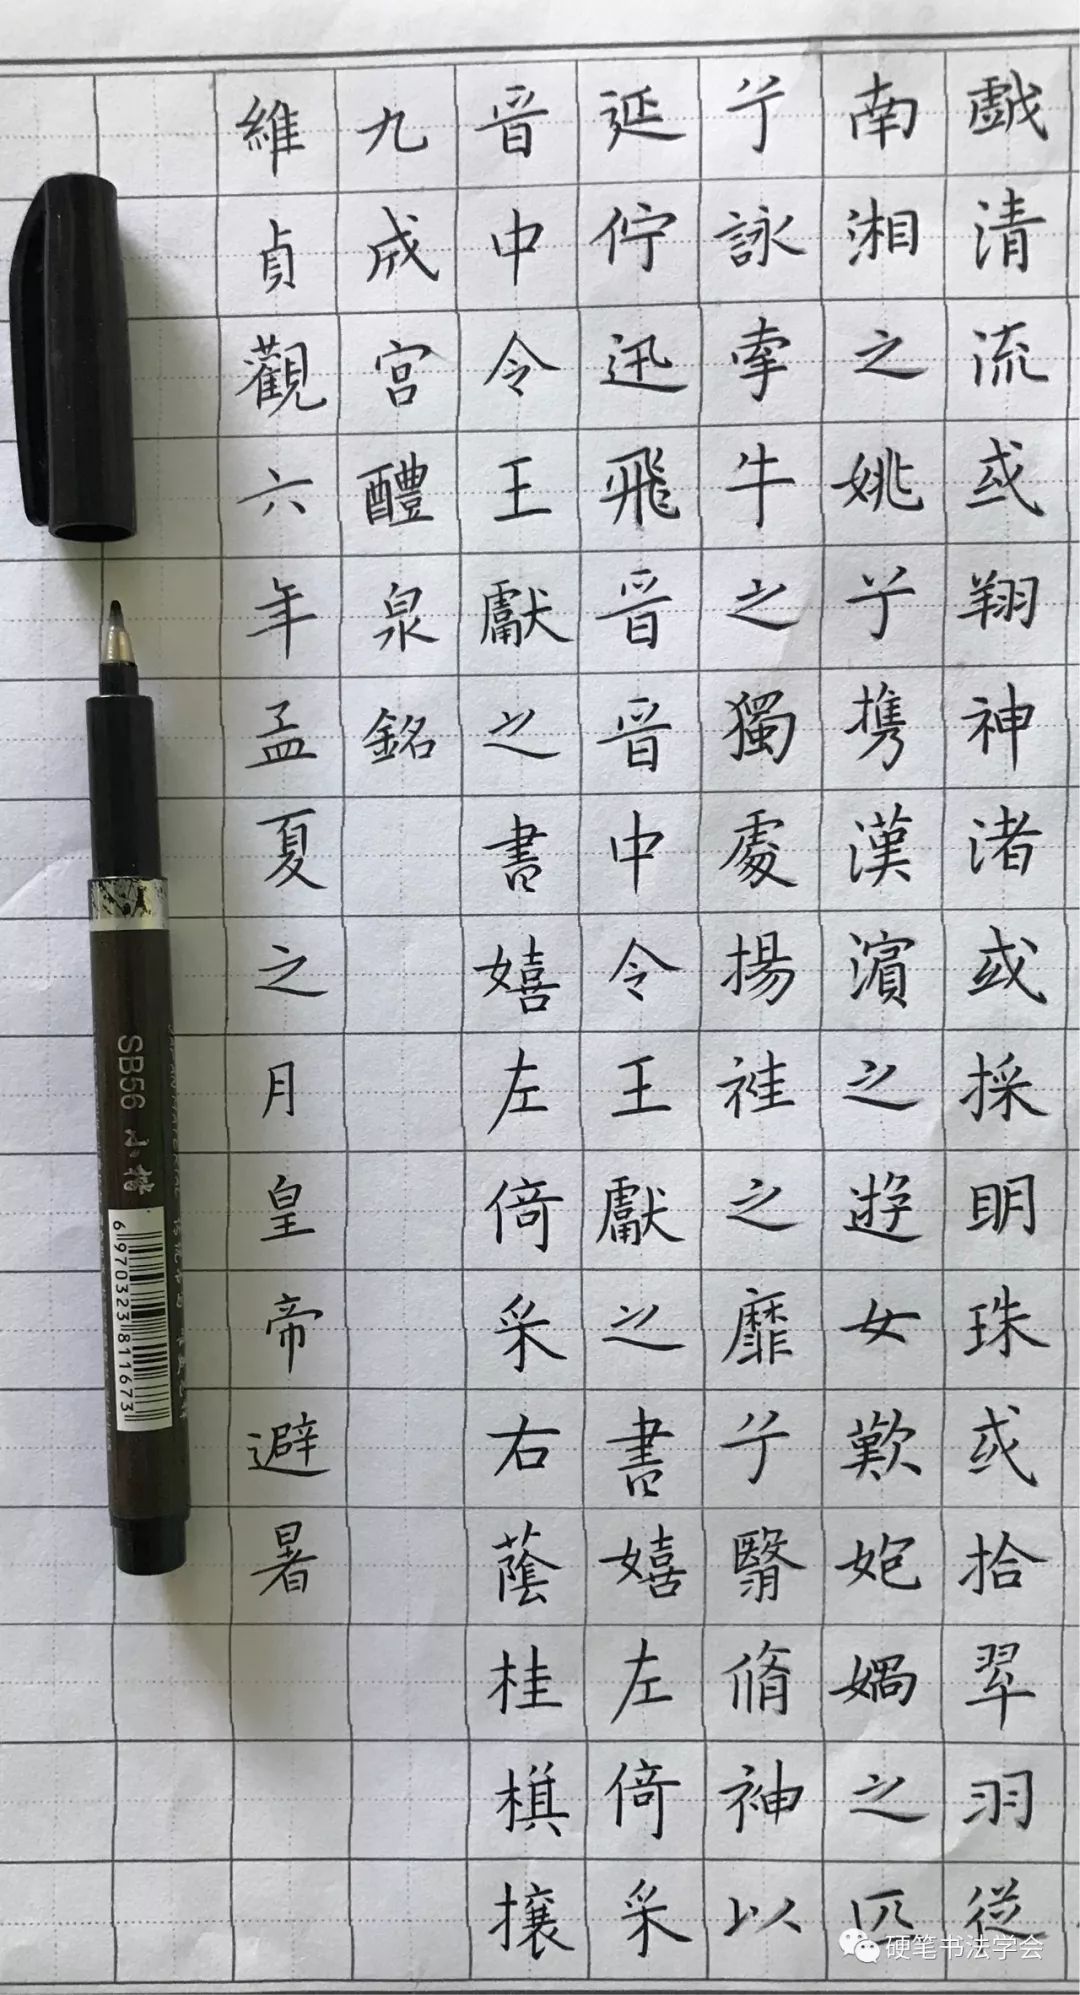 戯清流或翔神渚或採明珠或拾翠羽從
南湘之姚兮携漢濱之遊女歎匏媧之匹
兮詠牽牛之獨處揚袿之靡兮翳脩袖以
延佇迅飛晉晉中令王獻之書嬉左倚采
晉中令王獻之書嬉左倚采右蔭桂棋攘
九成宮醴泉銘
維貞觀六年孟夏之月皇帝避暑
SB56 小楷
6970323811673
硬笔书法学会